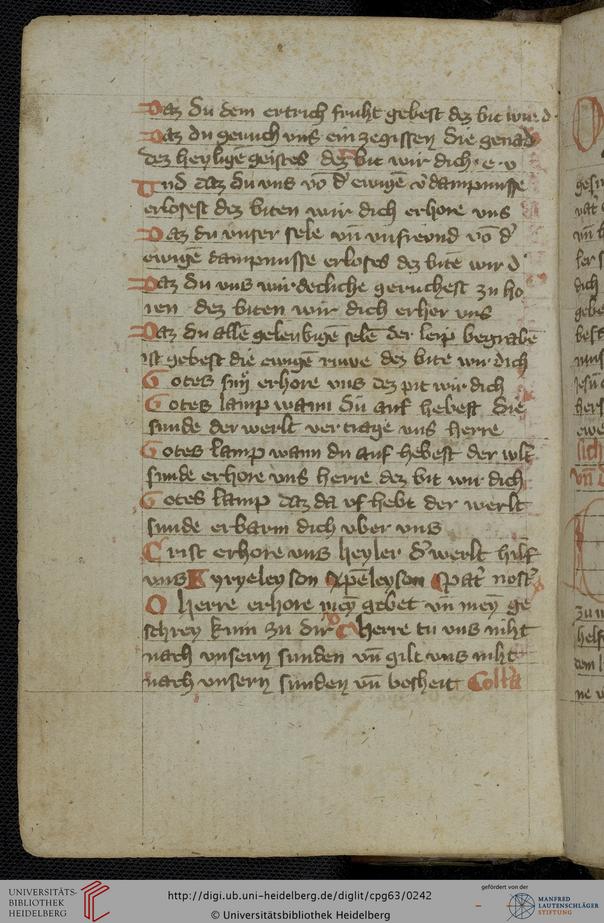 Daz du dem ertrich fruht gebest dez bit wir d
Daz du geruch uns ein zegissen die genad
dez heyligē geistes dez bit wir dich · e · v
Und daz du uns vō d' ewigē v'dampnusse
erlosest dez biten wir dich erhore uns
Daz du unser sele vn̄ unsfreond vō d'
ewigē dampnusse erloses dez bite wir d'
Daz du uns wirdecliche geruchest zu ho
ren dez biten wir dich erher uns
Daz du allē geleubigē selē der leip begrabē
ist gebest die ewigē ruwe dez bite wir dich
Gotes sun erhore uns dez pit wir dich
Gotes lamp wann du auf hebest die
sunde der werlt vertrage uns herre
Gotes lamp wann du auf hebest der w'lt
sunde erhore uns herre dez bit wir dich
Gotes lamp daz da uf hebt der werlt
sunde erbarm dich uber uns
Crist erhore uns heyler d' werlt hilf
uns Kyryeleyson xp̄eleyson pat' nost'
O herre erhore mey gebet vn̄ mey ge
schrey kum zu dir herre tu uns niht
nach unsern sunden vn̄ gilt uns niht
nach unsern sunden vn̄ bosheit Coll'a
UNIVERSITÄTS-
BIBLIOTHEK
HEIDELBERG
http://digi.ub.uni-heidelberg.de/diglit/cpg63/0242
© Universitätsbibliothek Heidelberg
gefördert von der
MANFRED
LAUTENSCHLÄGER
STIFTUNG